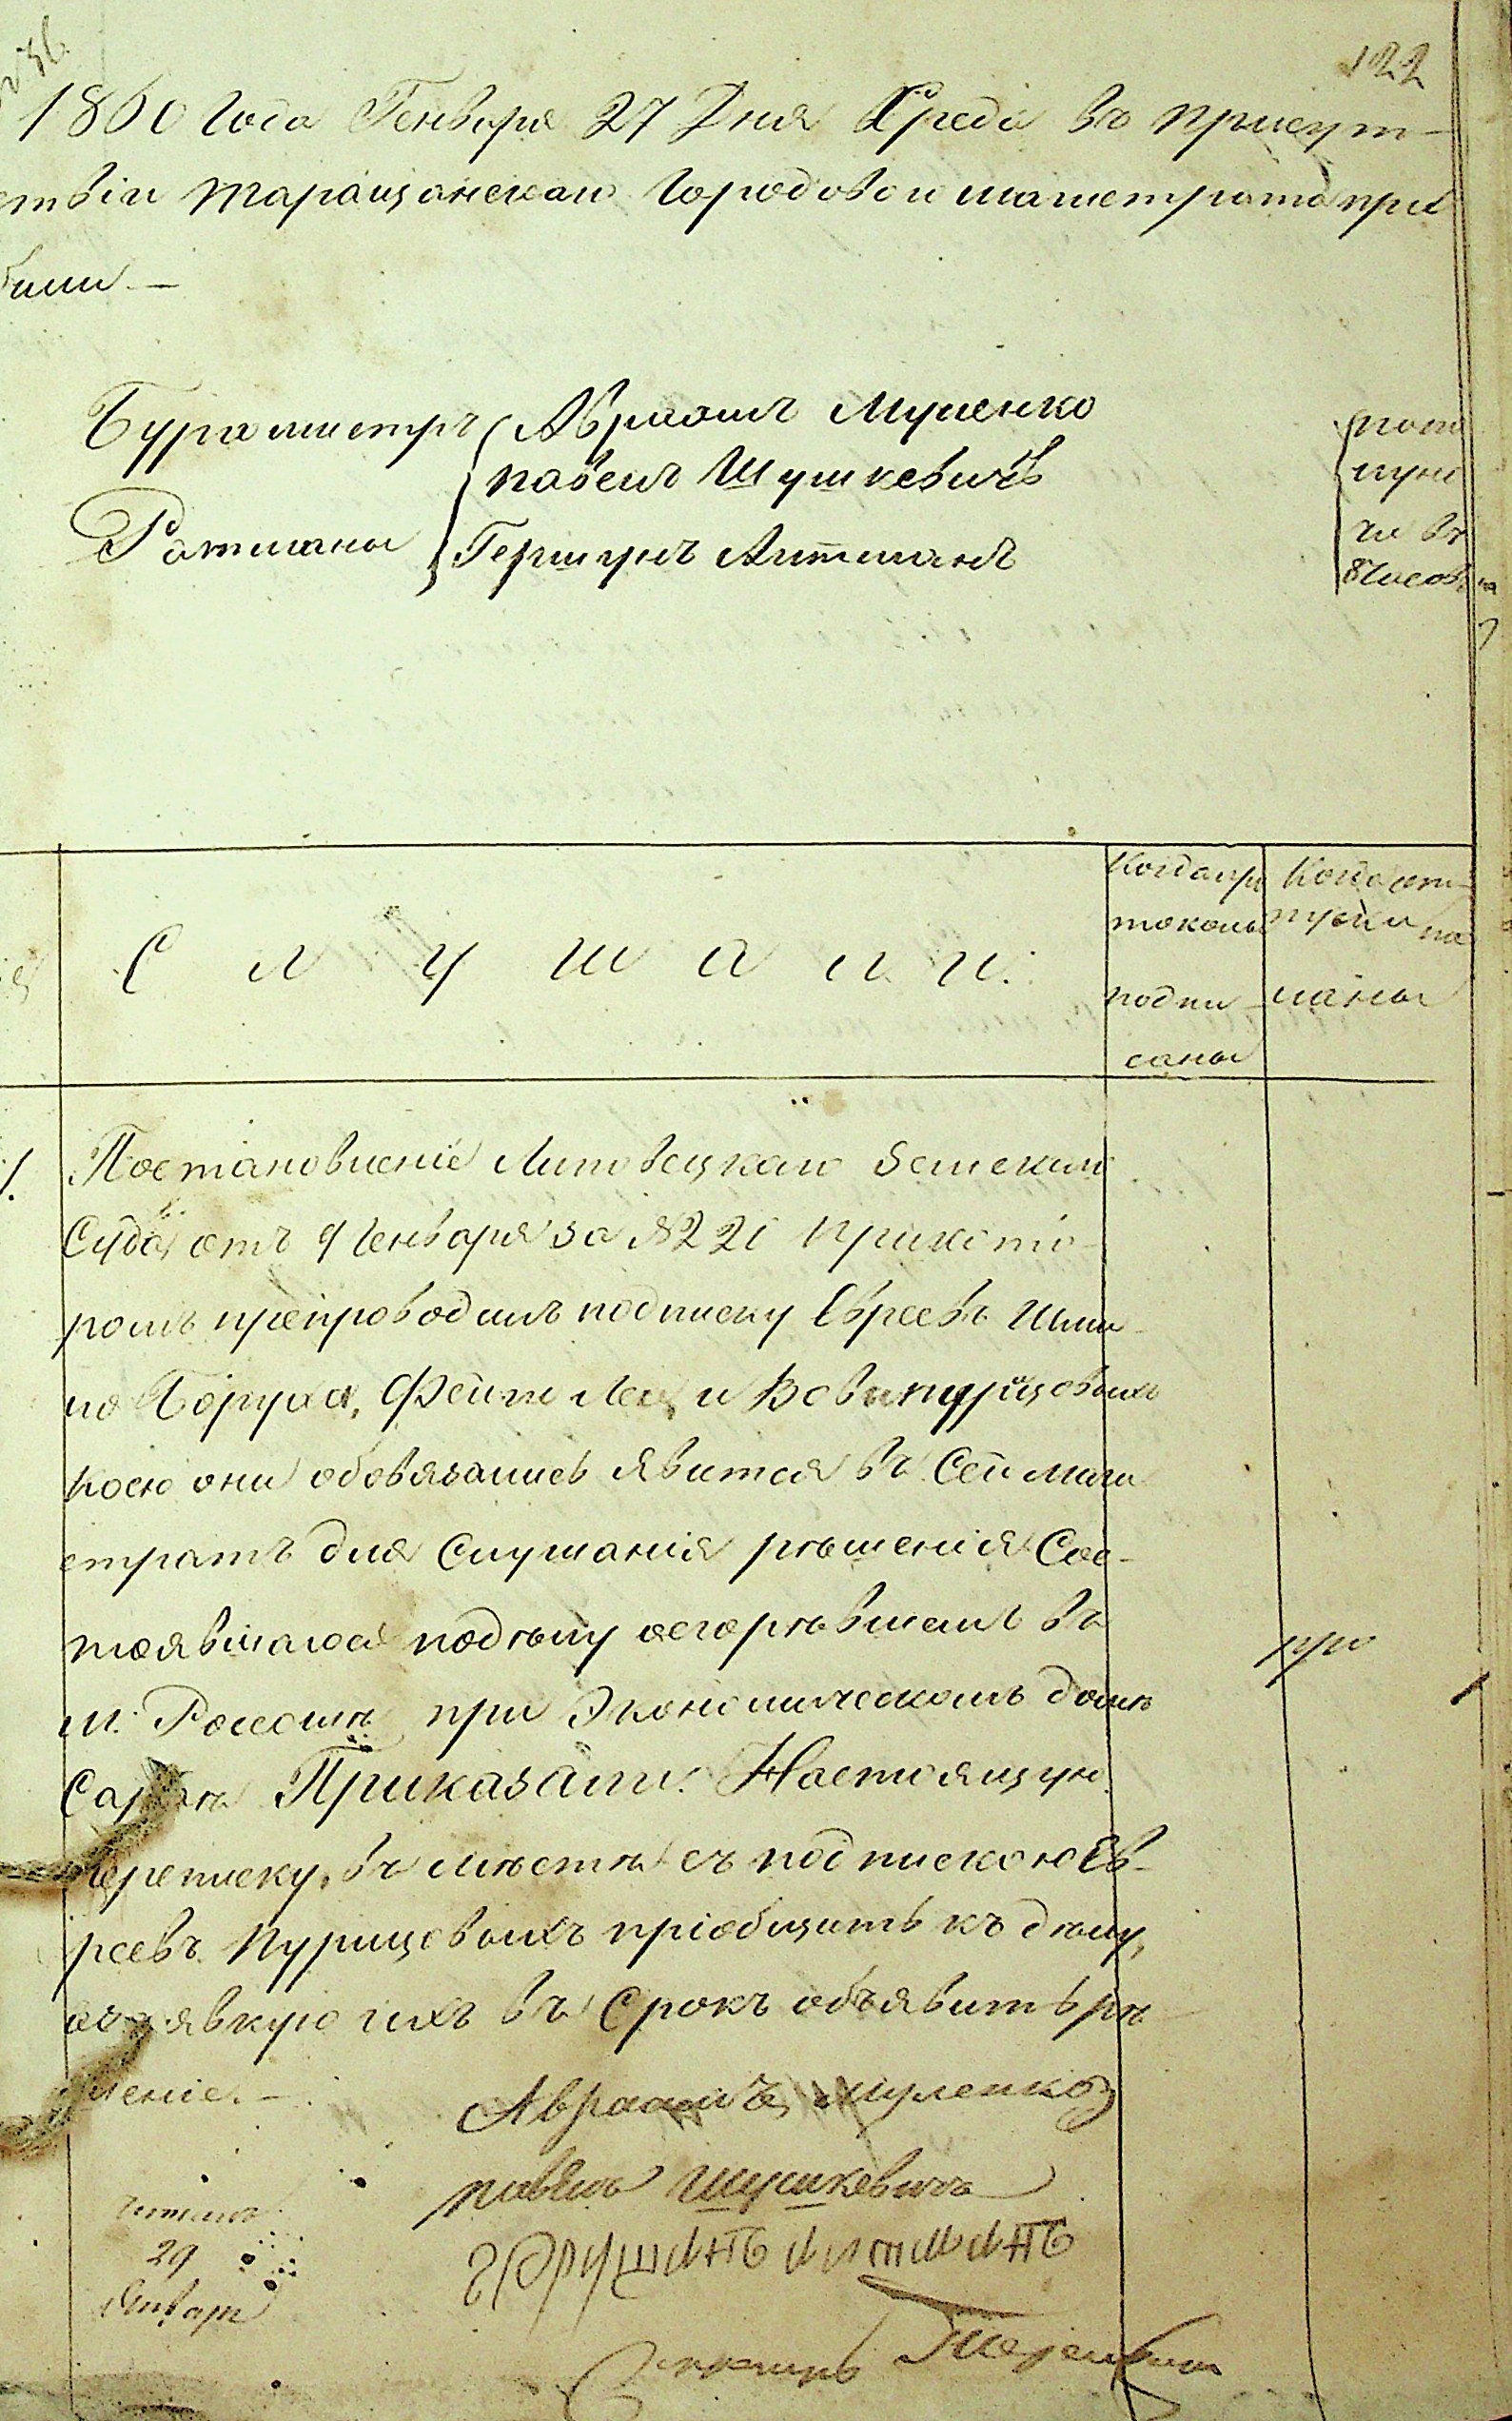 122
1860 года Генваря 27 Дня Среда въ присут-
ствіи таращанскаго Городоваго магистрата при
были —
Бургомистръ Авраамъ Муленко
павелъ Шушкевичъ
Ратманы Гершунъ Литманъ
по
пуно
ни въ
часовъ
Слушали.
Когда про
токолы
подпи-
саны
Когда от-
пуски по
сланы
1. Постановленіе Липовецкаго Земскаго
Суда отъ 9 Генваря за №221 при кото-
ромъ препроводилъ подписку Евреевъ Шми
ло Боруха, Фейте Леи, и Вовы пурицовыхъ
коею они обовязались явится въ Сей маги
стратъ для Слушанія рѣшенія Сос-
тоявшагося подѣлу осгорѣвшемъ въ
м. Россошѣ при Экономическомъ домѣ
Сараѣ Приказали: Настоящую
переписку, въмѣстѣ съ подпискою Ев-
реевъ Пурицовыхъ пріобщить къ дѣлу,
явкую ихъ въ Срокъ объявить рѣ
шеніе. —
Авраамъ Муленко
павелъ шушкевичъ
гершунъ литманъ
читалъ
29
Январь
Секретарь